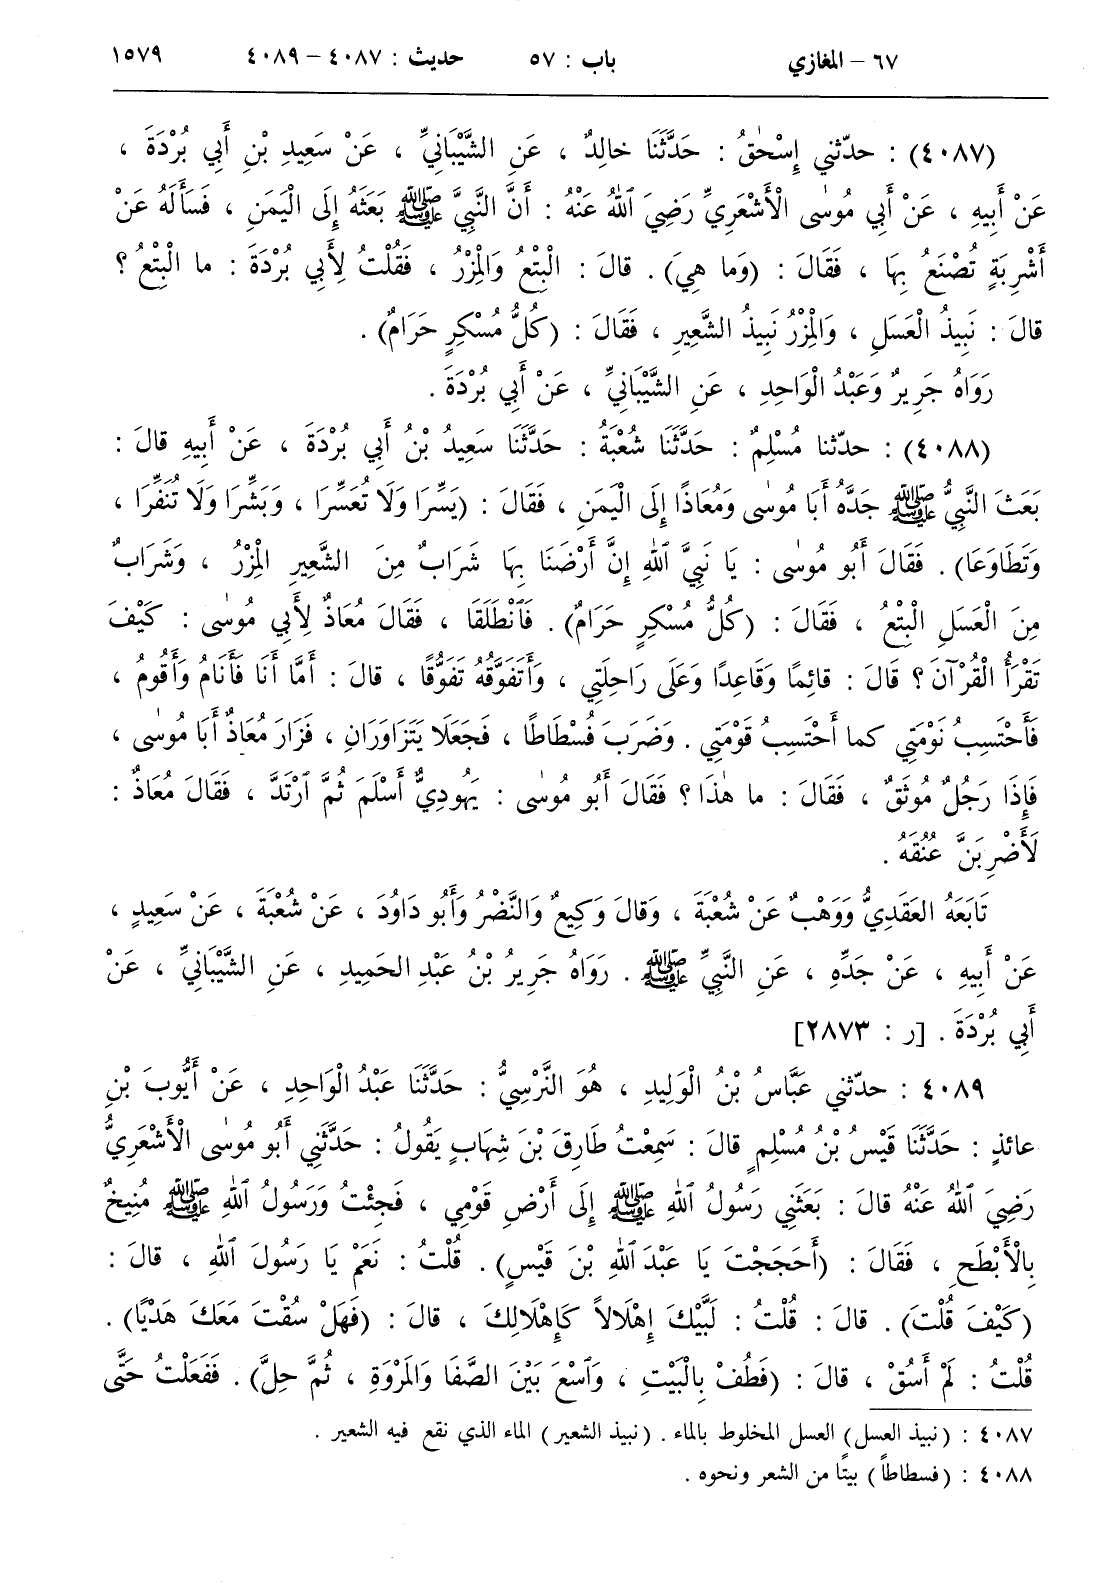 ٦٧ – المغازي باب : ٥٧ حديث : ٤٠٨٧ – ٤٠٨٩ ١٥٧٩
(٤٠٨٧) : حدّثني إِسْحٰقُ : حَدَّثَنَا خالِدٌ ، عَنِ الشَّيْبَانِيِّ ، عَنْ سَعِيدِ بْنِ أَبِي بُرْدَةَ ،
عَنْ أَبِيهِ ، عَنْ أَبِي مُوسٰى الْأَشْعَرِيِّ رَضِيَ ٱللهُ عَنْهُ : أَنَّ النَّبِيَّ ﷺ بَعَثَهُ إِلَى الْيَمَنِ ، فَسَأَلَهُ عَنْ
أَشْرِبَةٍ تُصْنَعُ بِهَا ، فَقَالَ : (وَما هِيَ) . قالَ : الْبِتْعُ وَالْمِزْرُ ، فَقُلْتُ لِأَبِي بُرْدَةَ : ما الْبِتْعُ ؟
قالَ : نَبِيذُ الْعَسَلِ ، وَالْمِزْرُ نَبِيذُ الشَّعِيرِ ، فَقَالَ : (كُلُّ مُسْكِرٍ حَرَامٌ) .
رَوَاهُ جَرِيرٌ وَعَبْدُ الْوَاحِدِ ، عَنِ الشَّيْبَانِيِّ ، عَنْ أَبِي بُرْدَةَ .
(٤٠٨٨) : حدّثنا مُسْلِمٌ : حَدَّثَنَا شُعْبَةُ : حَدَّثَنَا سَعِيدُ بْنُ أَبِي بُرْدَةَ ، عَنْ أَبِيهِ قالَ :
بَعَثَ النَّبِيُّ ﷺ جَدَّهُ أَبَا مُوسٰى وَمُعَاذًا إِلَى الْيَمَنِ ، فَقَالَ : (يَسِّرَا وَلَا تُعَسِّرَا ، وَبَشِّرَا وَلَا تُنَفِّرَا ،
وَتَطَاوَعَا) . فَقَالَ أَبُو مُوسٰى : يَا نَبِيَّ ٱللهِ إِنَّ أَرْضَنَا بِهَا شَرَابٌ مِنَ الشَّعِيرِ الْمِزْرُ ، وَشَرَابٌ
مِنَ الْعَسَلِ الْبِتْعُ ، فَقَالَ : (كُلُّ مُسْكِرٍ حَرَامٌ) . فَٱنْطَلَقَا ، فَقَالَ مُعَاذٌ لِأَبِي مُوسٰى : كَيْفَ
تَقْرَأُ الْقُرْآنَ ؟ قالَ : قائِمًا وَقَاعِدًا وَعَلَى رَاحِلَتِي ، وَأَتَفَوَّقُهُ تَفَوُّقًا ، قالَ : أَمَّا أَنَا فَأَنَامُ وَأَقُومُ ،
فَأَحْتَسِبُ نَوْمَتِي كما أَحْتَسِبُ قَوْمَتِي . وَضَرَبَ فُسْطَاطًا ، فَجَعَلَا يَتَزَاوَرَانِ ، فَزَارَ مُعَاذٌ أَبَا مُوسٰى ،
فَإِذَا رَجُلٌ مُوثَقٌ ، فَقَالَ : ما هٰذَا ؟ فَقَالَ أَبُو مُوسٰى : يَهُودِيٌّ أَسْلَمَ ثُمَّ ٱرْتَدَّ ، فَقَالَ مُعَاذٌ :
لَأَضْرِبَنَّ عُنُقَهُ .
تَابَعَهُ العَقَدِيُّ وَوَهْبٌ عَنْ شُعْبَةَ ، وَقالَ وَكِيعٌ وَالنَّضْرُ وَأَبُو دَاوُدَ ، عَنْ شُعْبَةَ ، عَنْ سَعِيدٍ ،
عَنْ أَبِيهِ ، عَنْ جَدِّهِ ، عَنِ النَّبِيِّ ﷺ . رَوَاهُ جَرِيرُ بْنُ عَبْدِ الحَمِيدِ ، عَنِ الشَّيْبَانِيِّ ، عَنْ
أَبِي بُرْدَةَ . [ر : ٢٨٧٣]
٤٠٨٩ : حدّثني عَبَّاسُ بْنُ الْوَلِيدِ ، هُوَ النَّرْسِيُّ : حَدَّثَنَا عَبْدُ الْوَاحِدِ ، عَنْ أَيُّوبَ بْنِ
عائذٍ : حَدَّثَنَا قَيْسُ بْنُ مُسْلِمٍ قالَ : سَمِعْتُ طَارِقَ بْنَ شِهَابٍ يَقُولُ : حَدَّثَنِي أَبُو مُوسٰى الْأَشْعَرِيُّ
رَضِيَ ٱللهُ عَنْهُ قالَ : بَعَثَنِي رَسُولُ ٱللهِ ﷺ إِلَى أَرْضِ قَوْمِي ، فَجِئْتُ وَرَسُولُ ٱللهِ ﷺ مُنِيخٌ
بِالْأَبْطَحِ ، فَقَالَ : (أَحَجَجْتَ يَا عَبْدَ ٱللهِ بْنَ قَيْسٍ) . قُلْتُ : نَعَمْ يَا رَسُولَ ٱللهِ ، قالَ :
(كَيْفَ قُلْتَ) . قالَ : قُلْتُ : لَبَّيْكَ إِهْلَالاً كَإِهْلَالِكَ ، قالَ : (فَهَلْ سُقْتَ مَعَكَ هَدْيًا) .
قُلْتُ : لَمْ أَسُقْ ، قالَ : (فَطُفْ بِالْبَيْتِ ، وَٱسْعَ بَيْنَ الصَّفَا وَالمَرْوَةِ ، ثُمَّ حِلَّ) . فَفَعَلْتُ حَتَّى
٤٠٨٧ : (نبيذ العسل) العسل المخلوط بالماء . (نبيذ الشعير) الماء الذي نقع فيه الشعير .
٤٠٨٨ : (فسطاطاً) بيتًا من الشعر ونحوه .